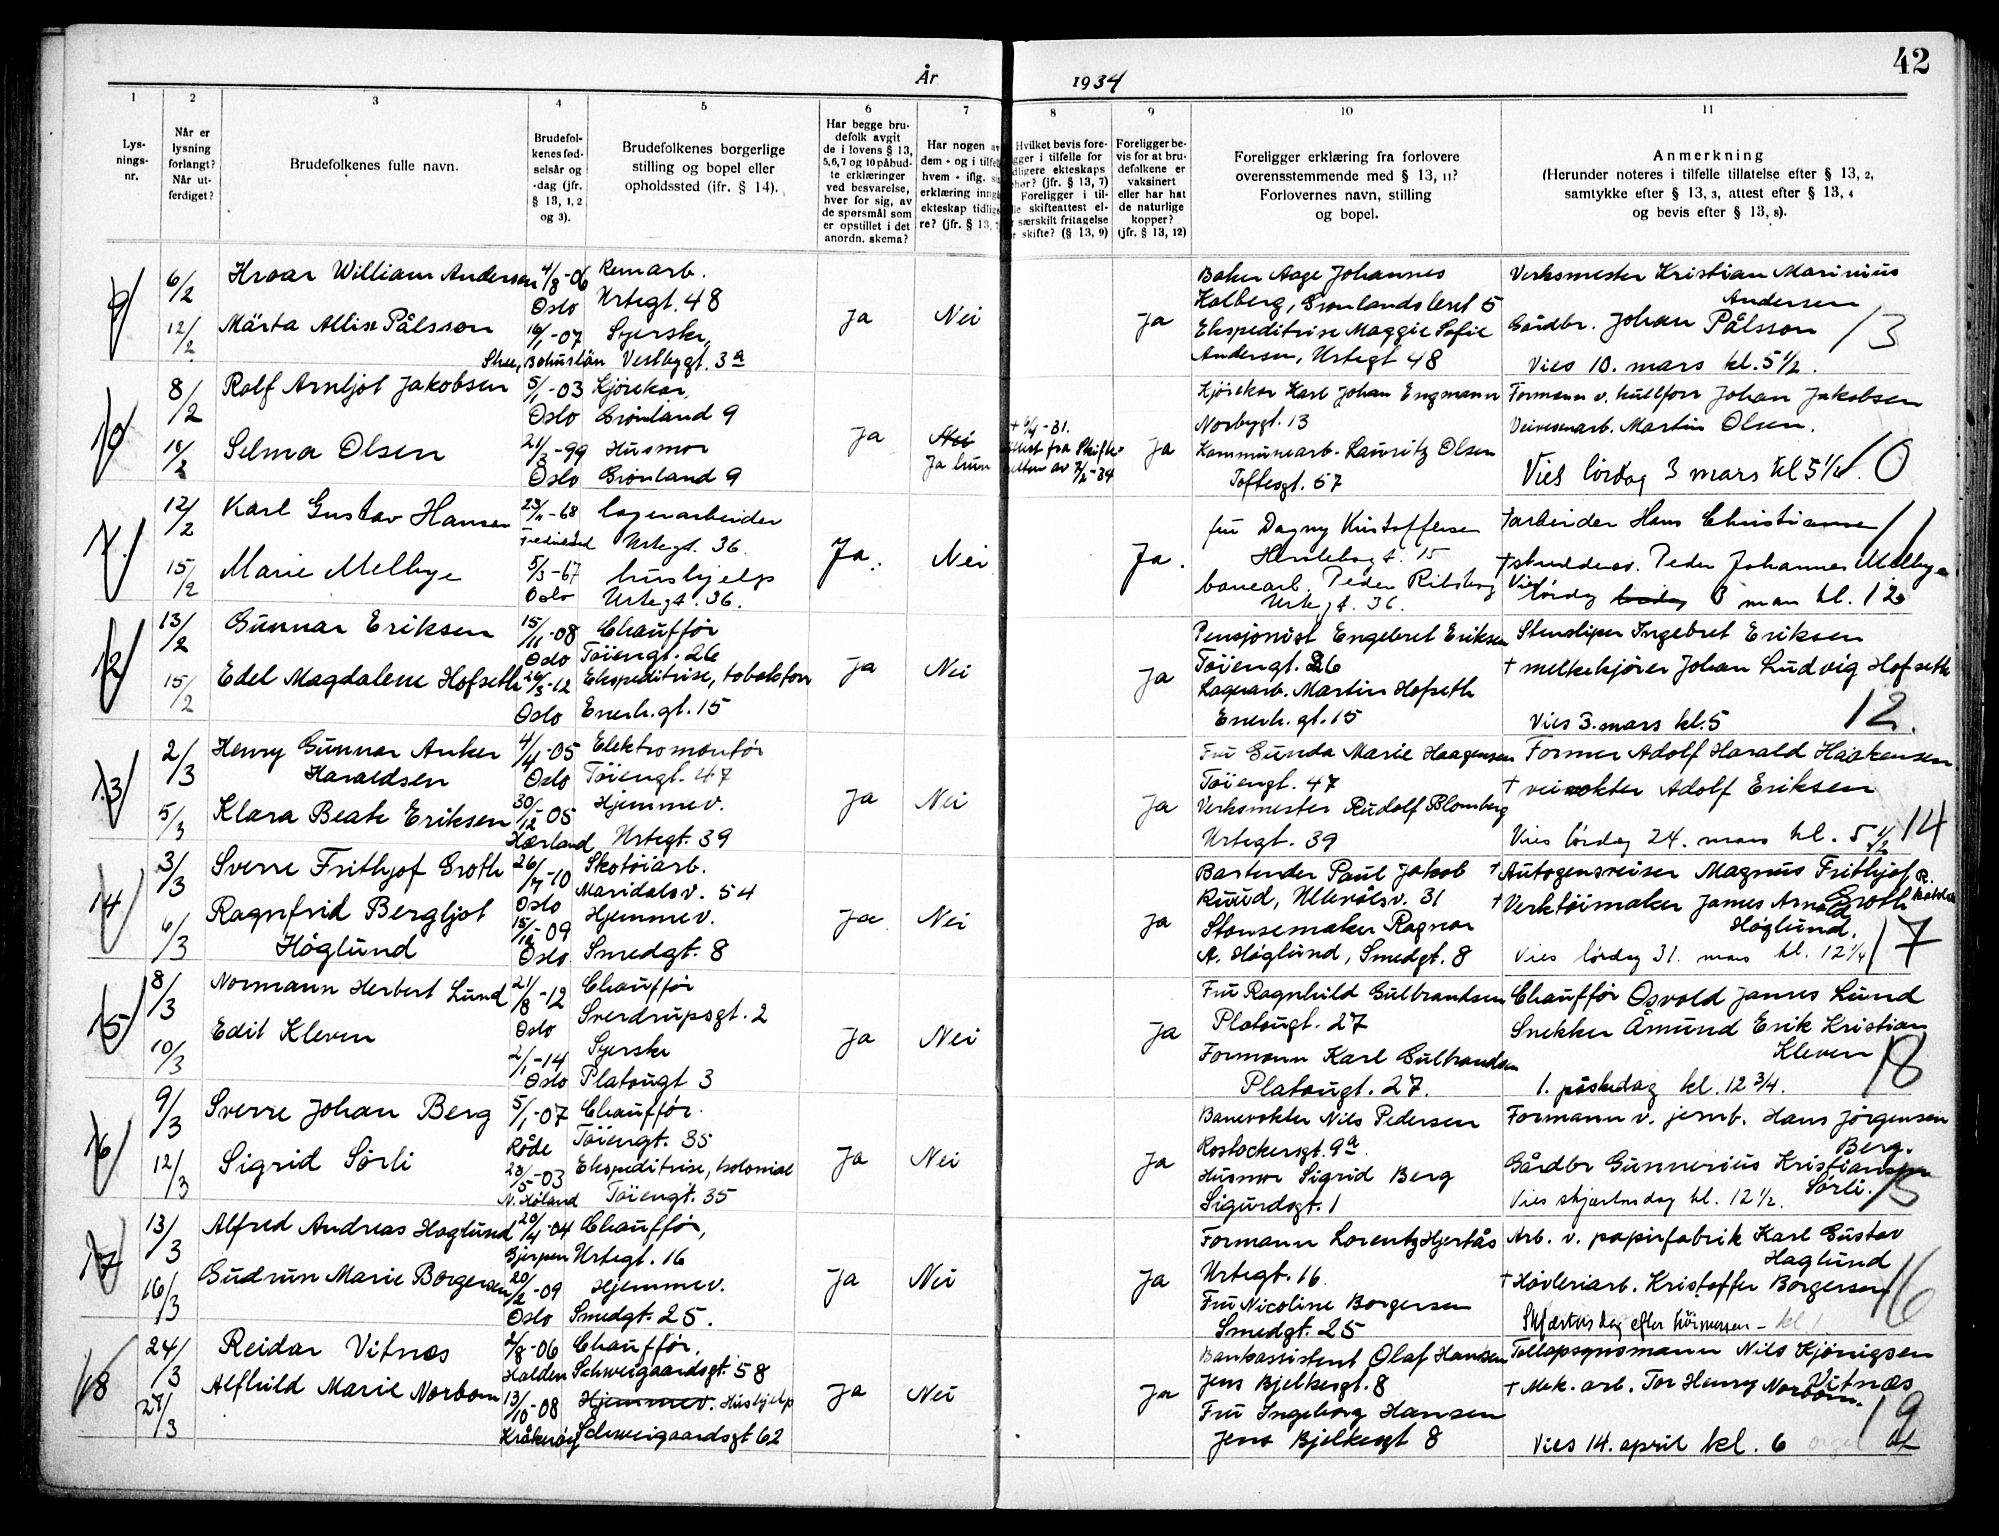 42
År 1934
1 2 3 4 5 6 7 8 9 10 11
Lys-
nings-
nr.
Når er
lysning
forlangt?
Når ut-
ferdiget?
Brudefolkenes fulle navn.
Brudefol-
kenes fød-
selsår og
-dag (jfr.
§ 13, 1, 2
og 3).
Brudefolkenes borgerlige
stilling og bopel eller
opholdssted (ifr. § 14).
Har begge bru-
defolk avgit
de i lovens § 13,
5,6,7 og 10 påbud-
te erklæringer
ved besvarelse,
hver for sig, av
de spørsmål som
er opstillet i det
anordn. skema?
Har nogen av
dem - og i tilfelle
hvem - iflg.
erklæring inngått
ekteskap tidlige-
re? (jfr. § 13,
Hvilket bevis fore-
gger i tilfelle for
dligere ekteskaps
hør? (jfr. § 13, 7)
Foreligger i til-
lle skifteattest el-
særskilt fritagelse
r skifte? (§ 13, 9)
Foreligger be-
vis for at bru-
defolkene er
vaksinert
eller har hat
de naturlige
kopper?
(jfr. § 13, 12)
Foreligger erklæring fra forlovere
overensstemmende med § 13, 11?
Forlovernes navn, stilling
og bopel.
Anmerkning
(Herunder noteres i tilfelle tillatelse efter § 13, 2,
samtykke efter § 13, 3, attest efter § 13, 4
og bevis efter § 13, 8).
9
6/2 Hroar William Andersen 4/8-06 Remarb.
Oslo Urtegt. 48
12/2 Märta Allise Pålsson 16/1-07 Syerske,
Skee, Bohuslän Vestbygt. 3a
Ja Nei Ja
Baker Aage Johannes
Holberg, Grønlandsleret 5
Ekspeditrise Maggie Sofie
Andersen, Urtegt 48
Verksmester Kristian Marinius
Andersen
Gårdbr. Johan Pålsson 13
Vies 10. mars kl. 5 1/2.
10
8/2 Rolf Arnljot Jakobsen 5/1-03 Kjørekar,
Oslo Grønland 9
Selma Olsen 21/3-99 Husmor
Oslo Grønland 9
Ja Nei
Ja hun
+ 6/4-31.
Attest fra Skifte-
retten av 7/2-34
Ja
Kjørekar Karl Johan Engmann
Norbygt. 13
Kommunearb. Lauritz Olsen
Toftesgt. 67
Formann v. kullforr Johan Jakobsen
Veivesenarb. Martin Olsen.
Vies lördag 3 mars kl 5 1/2. 10
11
12/2 Karl Gustav Hansen 23/11-68 lagerarbeider
Fredrikstad Urtegt. 36
15/2 Marie Melbye 5/3-67 hushjelp
Oslo Urtegt. 36.
Ja. Nei Ja.
fru Dagny Kristoffersen
15
banearb. Peder
Urtegt. 36.
+ arbeider Hans Christiansen 11
+ Peder Johannes Melbye
Vies lørdag 3 mars kl. 12
12
13/2 Gunnar Eriksen 15/11-08 Chauffør
Oslo Tøiengt. 26
15/2 Edel Magdalene Hofseth 26/3-12 Ekspeditrise, tobakkforr
Oslo Enerh.gt. 15
Ja Nei Ja
Pensjonist Engebret Eriksen
Tøiengt. 26
Lagerarb. Martin Hofseth
Enerh. gt. 15
Stensliper Ingebret Eriksen
+ melkekjører Johan Ludvig Hofseth
Vies 3. mars kl. 5 12.
13
2/3 Henry Gunnar Anker 4/4-05 Elektromontør
Haraldsen Oslo Tøiengt. 47
5/3 Klara Beate Eriksen 30/12-05 Hjemmev.
Hærland Urtegt. 39
Ja Nei Ja
Fru Gunda Marie Haagensen
Tøiengt. 47
Verksmester Rudolf Blomberg
Urtegt. 39
Former Adolf Harald Haakensen.
+ veivokter Adolf Eriksen
Vies lørdag 24. mars kl. 5 1/2 14
14
3/3 Sverre Frithjof Groth 26/7-10 Skotøiarb.
Oslo Maridalsv. 54
6/3 Ragnfrid Bergljot 15/12-09 Hjemmev.
Höglund Oslo Smedgt. 8
Ja Nei Ja
Bartender Paul Jakob
Ruud, Ullevålsv. 31
Stansemaker Ragnar
A. Höglund, Smedgt. 8
+ Autogensveiser Magnus Frithjof
Groth
+ Verktøimaker James Arnold
Höglund.
Vies lördag 31. mars kl. 12 1/4 17
15
8/3 Normann Herbert Lund 21/8-12 Chauffør
Oslo Sverdrupsgt. 2
10/3 Edit Kleven 2/1-14 Syerske
Oslo Platougt 3
Ja Nei Ja
Fru Ragnhild Gulbrandsen
Platougt. 27
Formann Karl Gulbrandsen
Platougt. 27.
Chauffør Osvald James Lund
Snekker Åmund Erik Kristian
Kleven 18
1. påskedag kl. 12 3/4.
16
9/3 Sverre Johan Berg 5/1-07 Chauffør.
Råde Tøiengt. 35
12/3 Sigrid Sörli 23/5-03 Ekspeditrise, kolonial
N. Høland Tøiengt. 35
Ja Nei Ja
Banevokter Nils Pedersen
Rostockersgt. 9a
Husmor Sigrid Berg
Sigurdsgt. 1
Formann v. jernb. Hans Jørgensen
Berg.
Gårdbr Gunnerius Kristiansen
Sörli. 15
Vies skjærtorsdag kl. 12 1/2.
17
13/3 Alfred Andreas Haglund 20/4-04 Chauffør,
Gjerpen Urtegt. 16
16/3 Gudrun Marie Borgersen 20/2-09 Hjemmev.
Oslo Smedgt. 25.
Ja Nei Ja
Formann Lorentz Hjertås
Urtegt. 16.
Fru Nicoline Borgersen
Smedgt. 25
Arb. v. papirfabrik Karl Gustav
Haglund
+ Høvleriarb. Kristoffer Borgersen 16
Skjærtorsdag efter höimessen - kl 1
18
24/3 Reidar Vitnæs 2/8-06 Chauffør,
Halden Schweigaardsgt. 58
27/3 Alfhild Marie Norbom 13/10-08 Hjemmev. Hushjelp
Kråkerøy Schweigaardsgt 62
Ja Nei Ja
Bankassistent Olaf Hansen
Jens Bjelkesgt. 8
Fru Ingeborg Hansen
Jens Bjelkesgt 8
Tollopsynsmann Nils Kjönigsen
Vitnæs
+ Mek. arb. Tor Henry Norbom.
Vies 14. april kl. 6 orgel 19